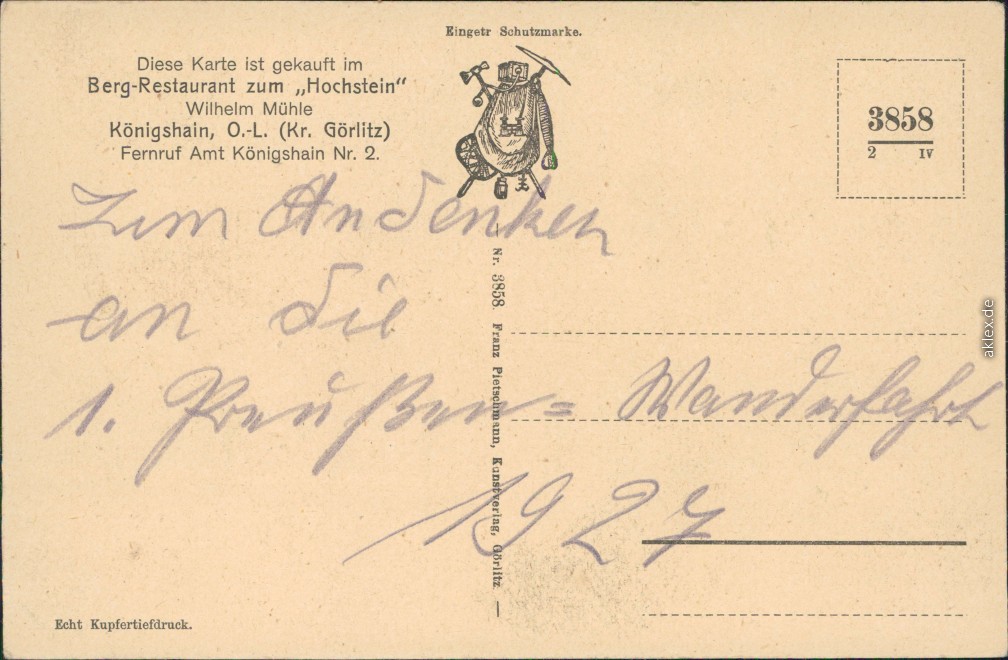 Eingetr Schutzmarke.
Diese Karte ist gekauft im
Berg-Restaurant zum „Hochstein“
Wilhelm Mühle
Königshain, O.-L. (Kr. Görlitz)
Fernruf Amt Königshain Nr. 2.
3858
2 IV
Zum Andenken
an die
1. Preußen= Wanderfahrt
1927
— Nr. 3858. Franz Pietschmann, Kunstverlag, Görlitz —
Echt Kupfertiefdruck.
aklex.de